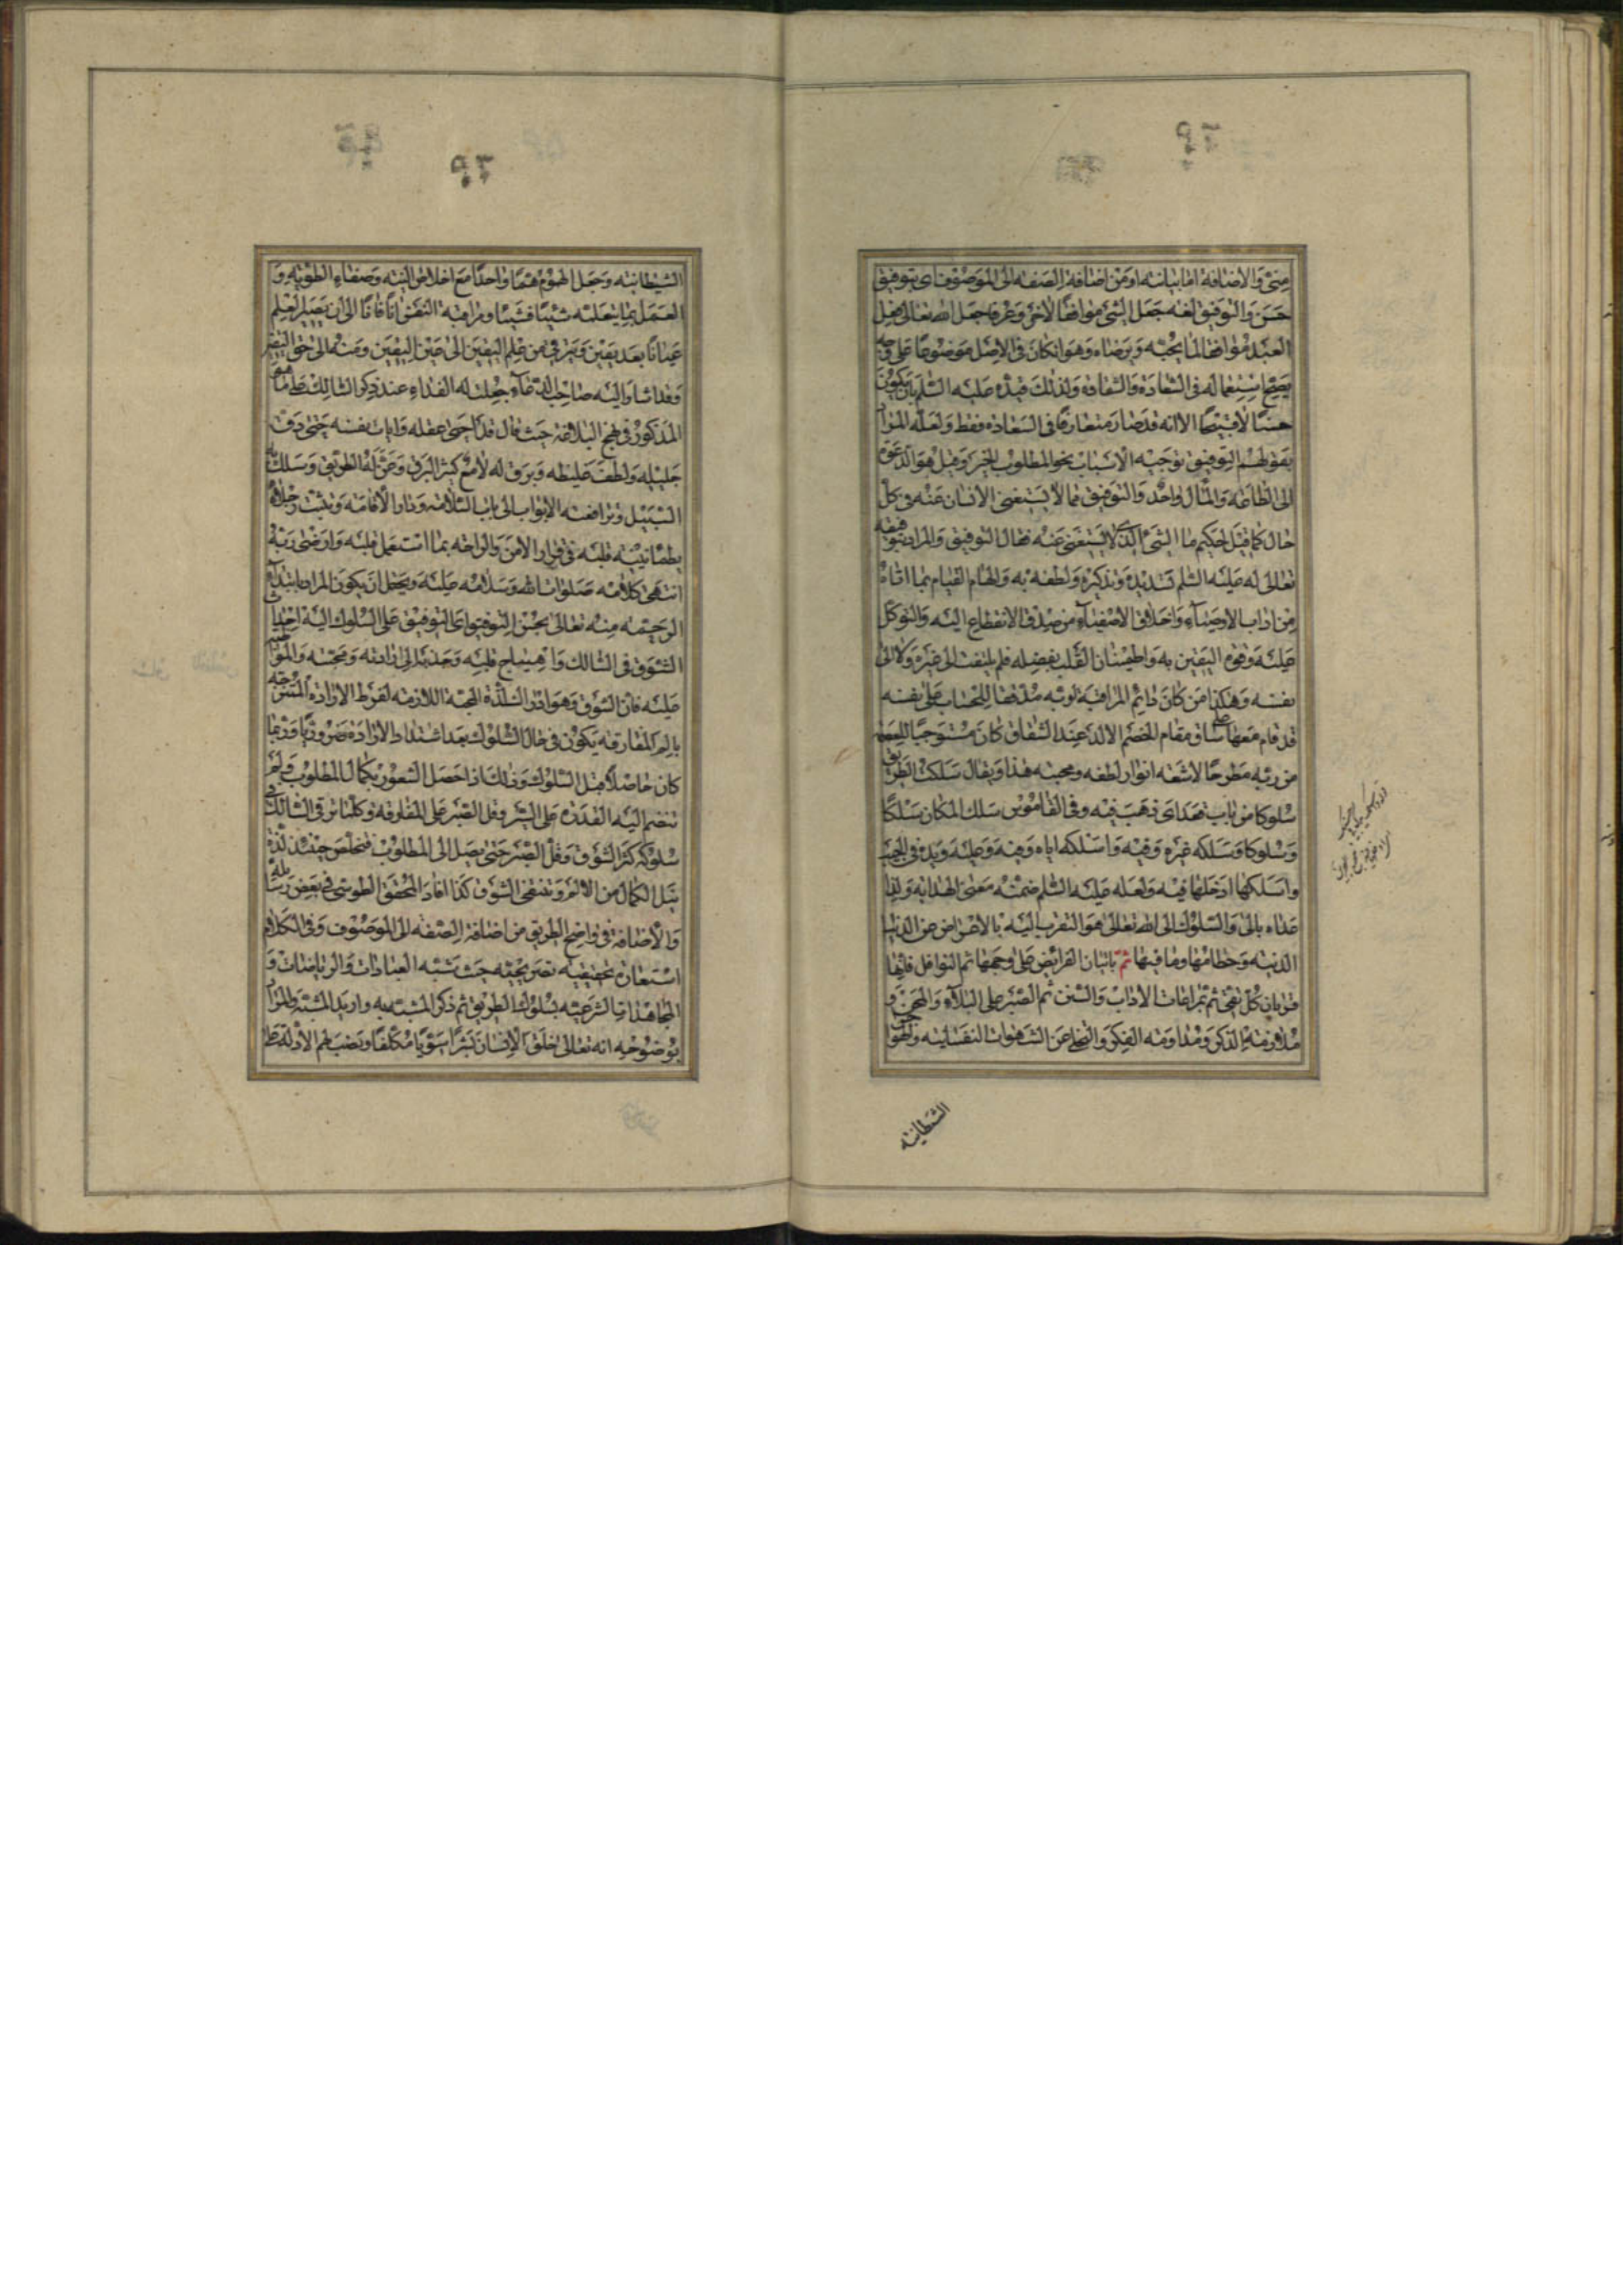 منى والاضافة اما بيانيه او من اضافة الصفه الى الموصوف اى بتوفيق
حسن والتوفيق لغه جعل الشئ موافقا لاخر وعرفا جعل الله تعالى فعل
العبد موافقا لما يحبه ويرضاه وهو ان كان فى الاصل موضوعا على وجه
يصح استعماله فى السعادة والشقاوة ولذلك قيده عليه السلم بان يكون
حسنا لا قبيحا الا انه قد صار متعارفا فى السعاده فقط ولعله المراد
بقولهم التوفيق توجيه الاسباب نحو المطلوب الخير وقيل هو الدعوة
الى الطاعة والمآل واحد والتوفيق مما لا يستغنى الانسان عنه فى كل
حال كما قيل لحكيم ما الشئ الذى لا يستغنى عنه فقال التوفيق والمراد بتوفيقه
تعالى له عليه السلم تسديده وتذكيره ولطفه به والهام القيام بما اتاه
من اداب الاوصياء واخلاق الاصفياء من صدق الانقطاع اليه والتوكل
عليه وقوة اليقين به واطمينان القلب بفضله فلم يلتفت الى غيره ولا الى
نفسه وهكذا من كان دائم المراقبة لربه مديما للحساب على نفسه
قد قام معها على ساق مقام الخصم الالد عند الشقاق كان مستوجبا
من ربه مطرحا لاشعه انوار لطفه ومحبته هذا ويقال سلكت الطريق
سلوكا من باب قعد اى ذهب فيه وفى القاموس سلك المكان سلكا
وسلوكا وسلكه غيره وفيه واسلكه اياه وفيه وعليه ويده فى الجيب
واسلكها ادخلها فيه ولعله عليه السلم ضمنه معنى الهدايه ولذا
عداه بالى والسلوك الى الله تعالى هو التقرب اليه بالاعراض عن الدنيا
الدنيه وحطامها وما فيها ثم باتيان الفرائض على وجهها ثم النوافل فانها
قربان كل تقى ثم بمراعات الاداب والسنن ثم الصبر على البلاء والمحن و
ملازمة الذكر ومداومه الفكر والتخلى عن الشهوات النفسانيه والهوا
الشيطانيه
الشيطانيه وجعل الهموم هما واحدا مع اخلاص النيه وصفاء الطويه و
العمل بما يعلمه شيئا فشيئا ومراقبة النفس انا فانا الى ان يصير العلم
عيانا بعد يقين ويترقى من علم اليقين الى عين اليقين ومنه الى حق اليقين
وقد اشار اليه صاحب الدعاء جعلت له الفداء عند ذكر السالك على ما هو
المذكور فى نهج البلاغة حيث قال قد احيى عقله وامات نفسه حتى دق
جليله ولطف غليظه وبرق له لامع كثير البرق له الطريق وسلك به
السبيل وتدافعته الابواب الى باب السلامه ودار الاقامة وثبتت رجلاه
بطمانينه قلبه فى قرار الامن والراحه بما استعمل قلبه وارضى ربه
انتهى كلامه صلوات الله وسلامه عليه ويحتمل ان يكون المراد بابتداء
الرحمه منه تعالى بحسن التوفيق اى التوفيق على السلوك اليه احداث
الشوق فى السالك واهتياج قلبه وجذبه الى ارادته ومحبته
عليه فان الشوق وهو ادراك لذة المحبة اللازمه لفرط الارادة الممتزجه
بالم المفارقه يكون فى حال السلوك بعد اشتداد الارادة ضروريا وربما
كان حاصلا قبل السلوك وذلك اذا حصل الشعور بكمال المطلوب ولم
تنضم اليه القدرة على السير وقل الصبر على المفارقه وكلما ترقى السالك فى
سلوكه كثر الشوق وقل الصبر حتى يصل الى المطلوب فتخلص حينئذ لذة
نيل الكمال من الالم وينتفى الشوق كذا افاد المحقق الطوسى فى بعض رسائله
والاضافة فى واضح الطريق من اضافة الصفه الى الموصوف وفى الكلام
استعارة تحقيقيه تصريحيه حيث شبه العبادات والرياضات و
المجاهدات الشرعيه بسلوك الطريق ثم ذكر المشبه به واريد المشبه والمراد
بوضوحه انه تعالى خلق الانسان بشرا سويا مكلفا ونصب لهم الادلة